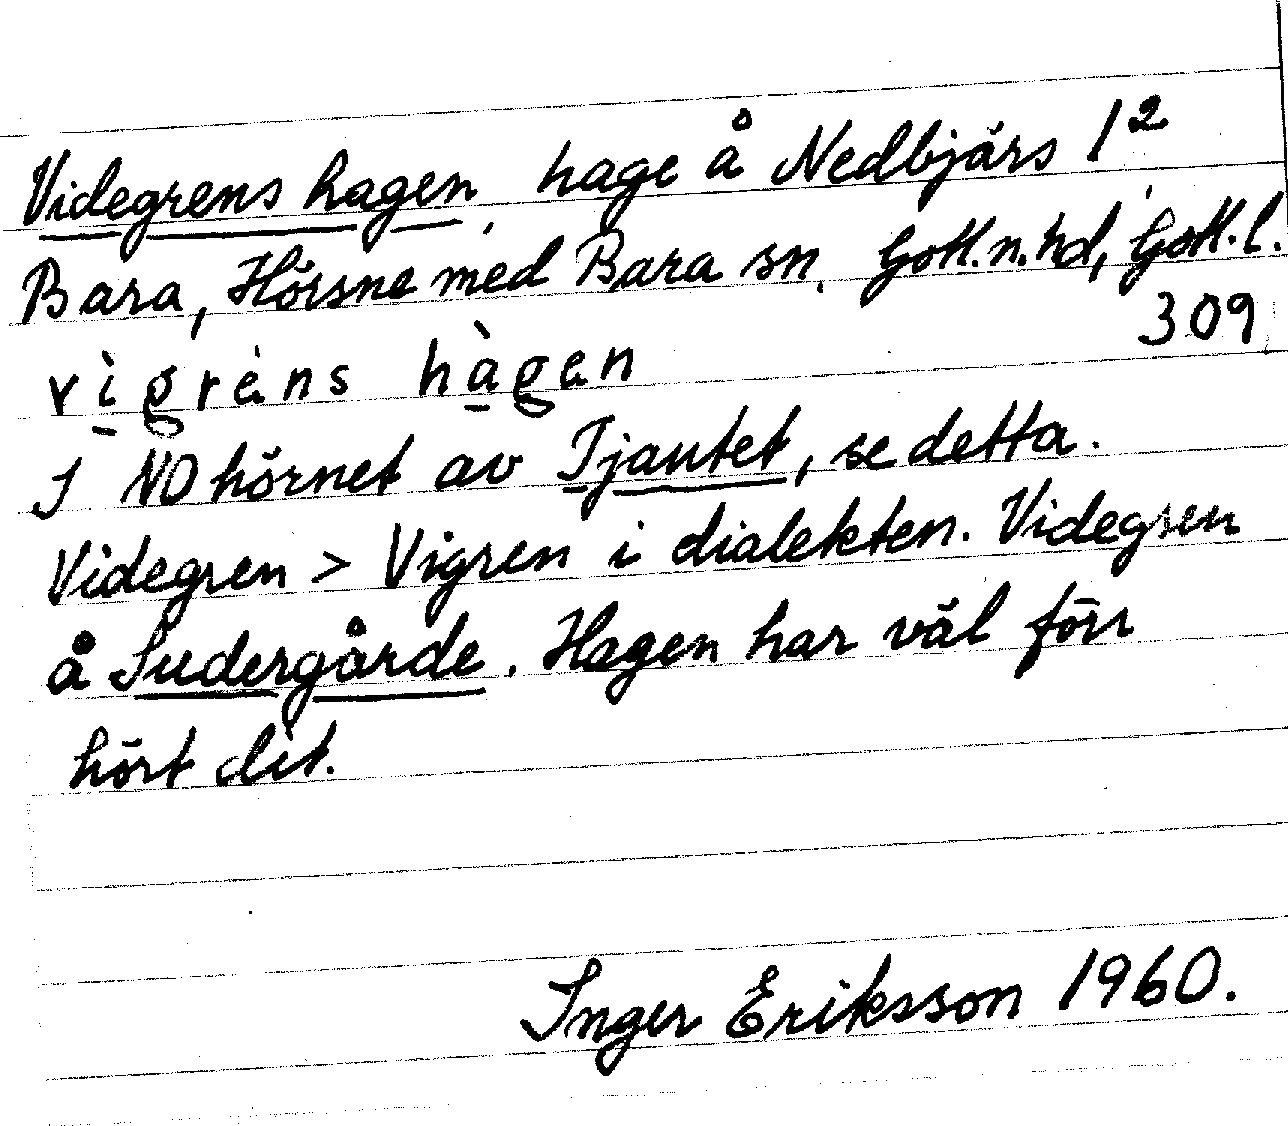 Videgrens hagen, hage å Nedbjärs 1²,
Bara, Hörsne med Bara sn. Gotl.n.hd, Gotl.l.
309
vìgrèns hàgen
I NO hörnet av Tjautet, se detta.
Videgren > Vigren i dialekten. Videgren
å Sudergårde. Hagen har väl förr
hört dit.
Inger Eriksson 1960.